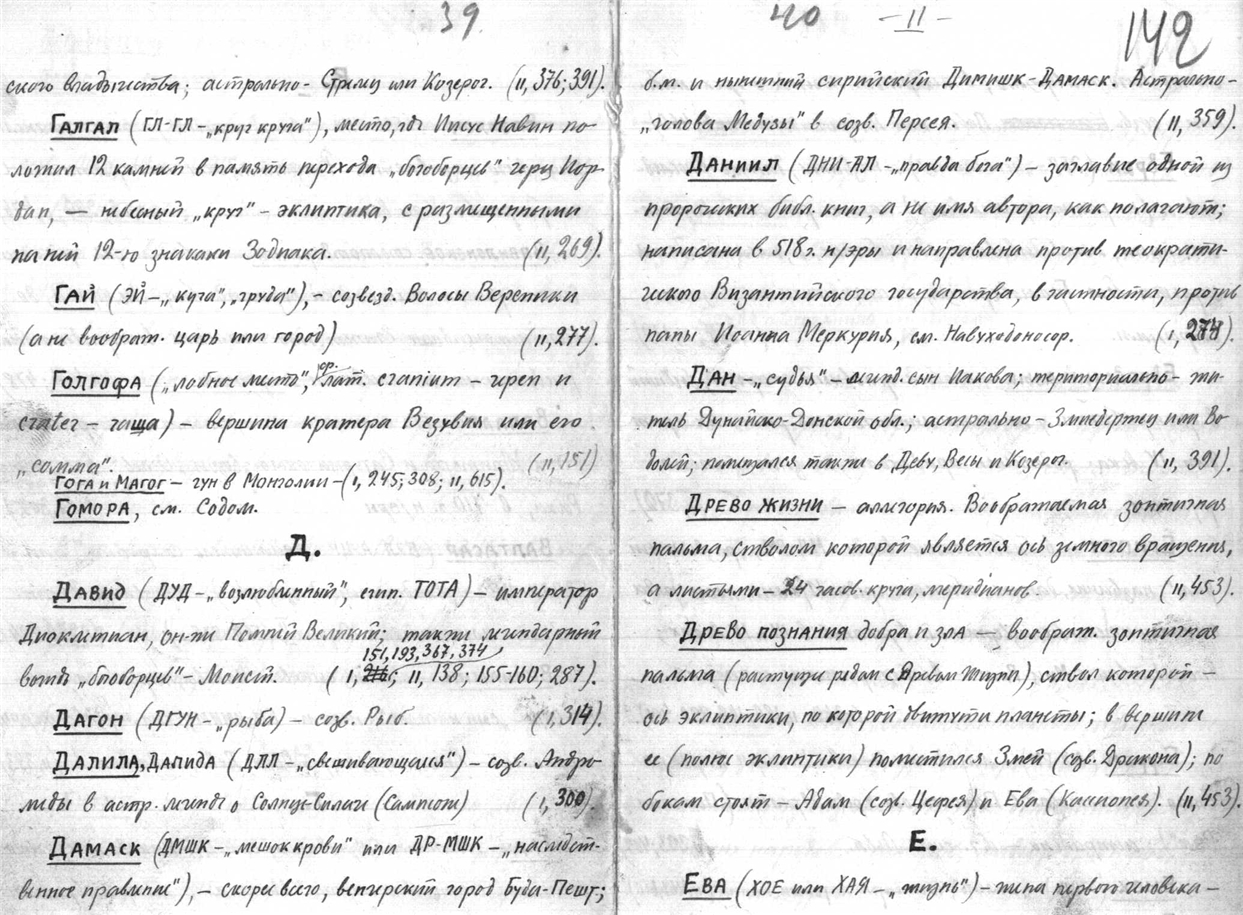 39.
ского владычества; астрально – Стрелец или Козерог. (II, 376; 391).
ГАЛГАЛ (ГЛ-ГЛ – „круг круга"), место, где Иисус Навин по-
ложил 12 камней в память перехода „богоборцев" через Иор-
дан, — небесный „круг" – эклиптика, с размещенными
на ней 12-ю знаками Зодиака. (II, 269).
ГАЙ (ЭЙ – „куча", „груда"), – созвезд. Волосы Вереники
(а не вображ. царь или город) (II, 277).
ГОЛГОФА („лобное место", ср. лат. cranium – череп и
crater – чаща) – вершина кратера Везувия или его
„сомма". (II, 151)
ГОГА и МАГОГ – гун в Монголии – (I, 245; 308; II, 615).
ГОМОРА, см. Содом.
Д.
ДАВИД (ДУД – „возлюбленный", егип. ТОТА) – император
Диоклетиан, он-же Помпей Великий; также легендарный
151, 193, 367, 374
вождь „богоборцев" – Моисей. (I, ; II, 138; 155-160; 287).
ДАГОН (ДГУН – „рыба) – созв. Рыб. (I, 314).
ДАЛИЛА, ДАЛИДА (ДЛЛ – „свешивающаяся") – созв. Андро-
меды в астр. легенде о Солнце-Силаче (Самсоне) (I, 300).
ДАМАСК (ДМШК – „мешок крови" или ДР-МШК – „наследст-
венное правление"), – скорее всего, венгерский город Буда-Пешт;
40 – II – 142
б.м. и нынешний сирийский Димишк-Дамаск. Астрально –
„голова Медузы" в созв. Персея. (II, 359).
ДАНИИЛ (ДНИ-АЛ – „правда бога") – заглавие одной из
пророческих библ. книг, а не имя автора, как полагают;
написана в 518 г. н/эры и направлена против теократи-
ческого Византийского государства, в частности, против
папы Иоанна Меркурия, см. Навуходоносор. (I, 274).
ДАН – „судья" – легенд. сын Иакова; териториально – жи-
тель Дунайско-Донской обл.; астрально – Змиедержец или Во-
долей; помещался также в Деву, Весы и Козерог. (II, 391).
ДРЕВО ЖИЗНИ – аллегория. Воображаемая зонтичная
пальма, стволом которой является ось земного вращения,
а листьями – 24 часов. круга, меридианов. (II, 453).
ДРЕВО ПОЗНАНИЯ добра и зла — вображ. зонтичная
пальма (растущая рядом с Древом Жизни), ствол которой –
ось эклиптики, по которой движутся планеты; в вершине
ее (полюс эклиптики) поместился Змей (созв. Дракона); по
бокам стоят – Адам (созв. Цефея) и Ева (Кассиопея). (II, 453).
Е.
ЕВА (ХОЕ или ХАЯ – „жизнь") – жена первого человека –